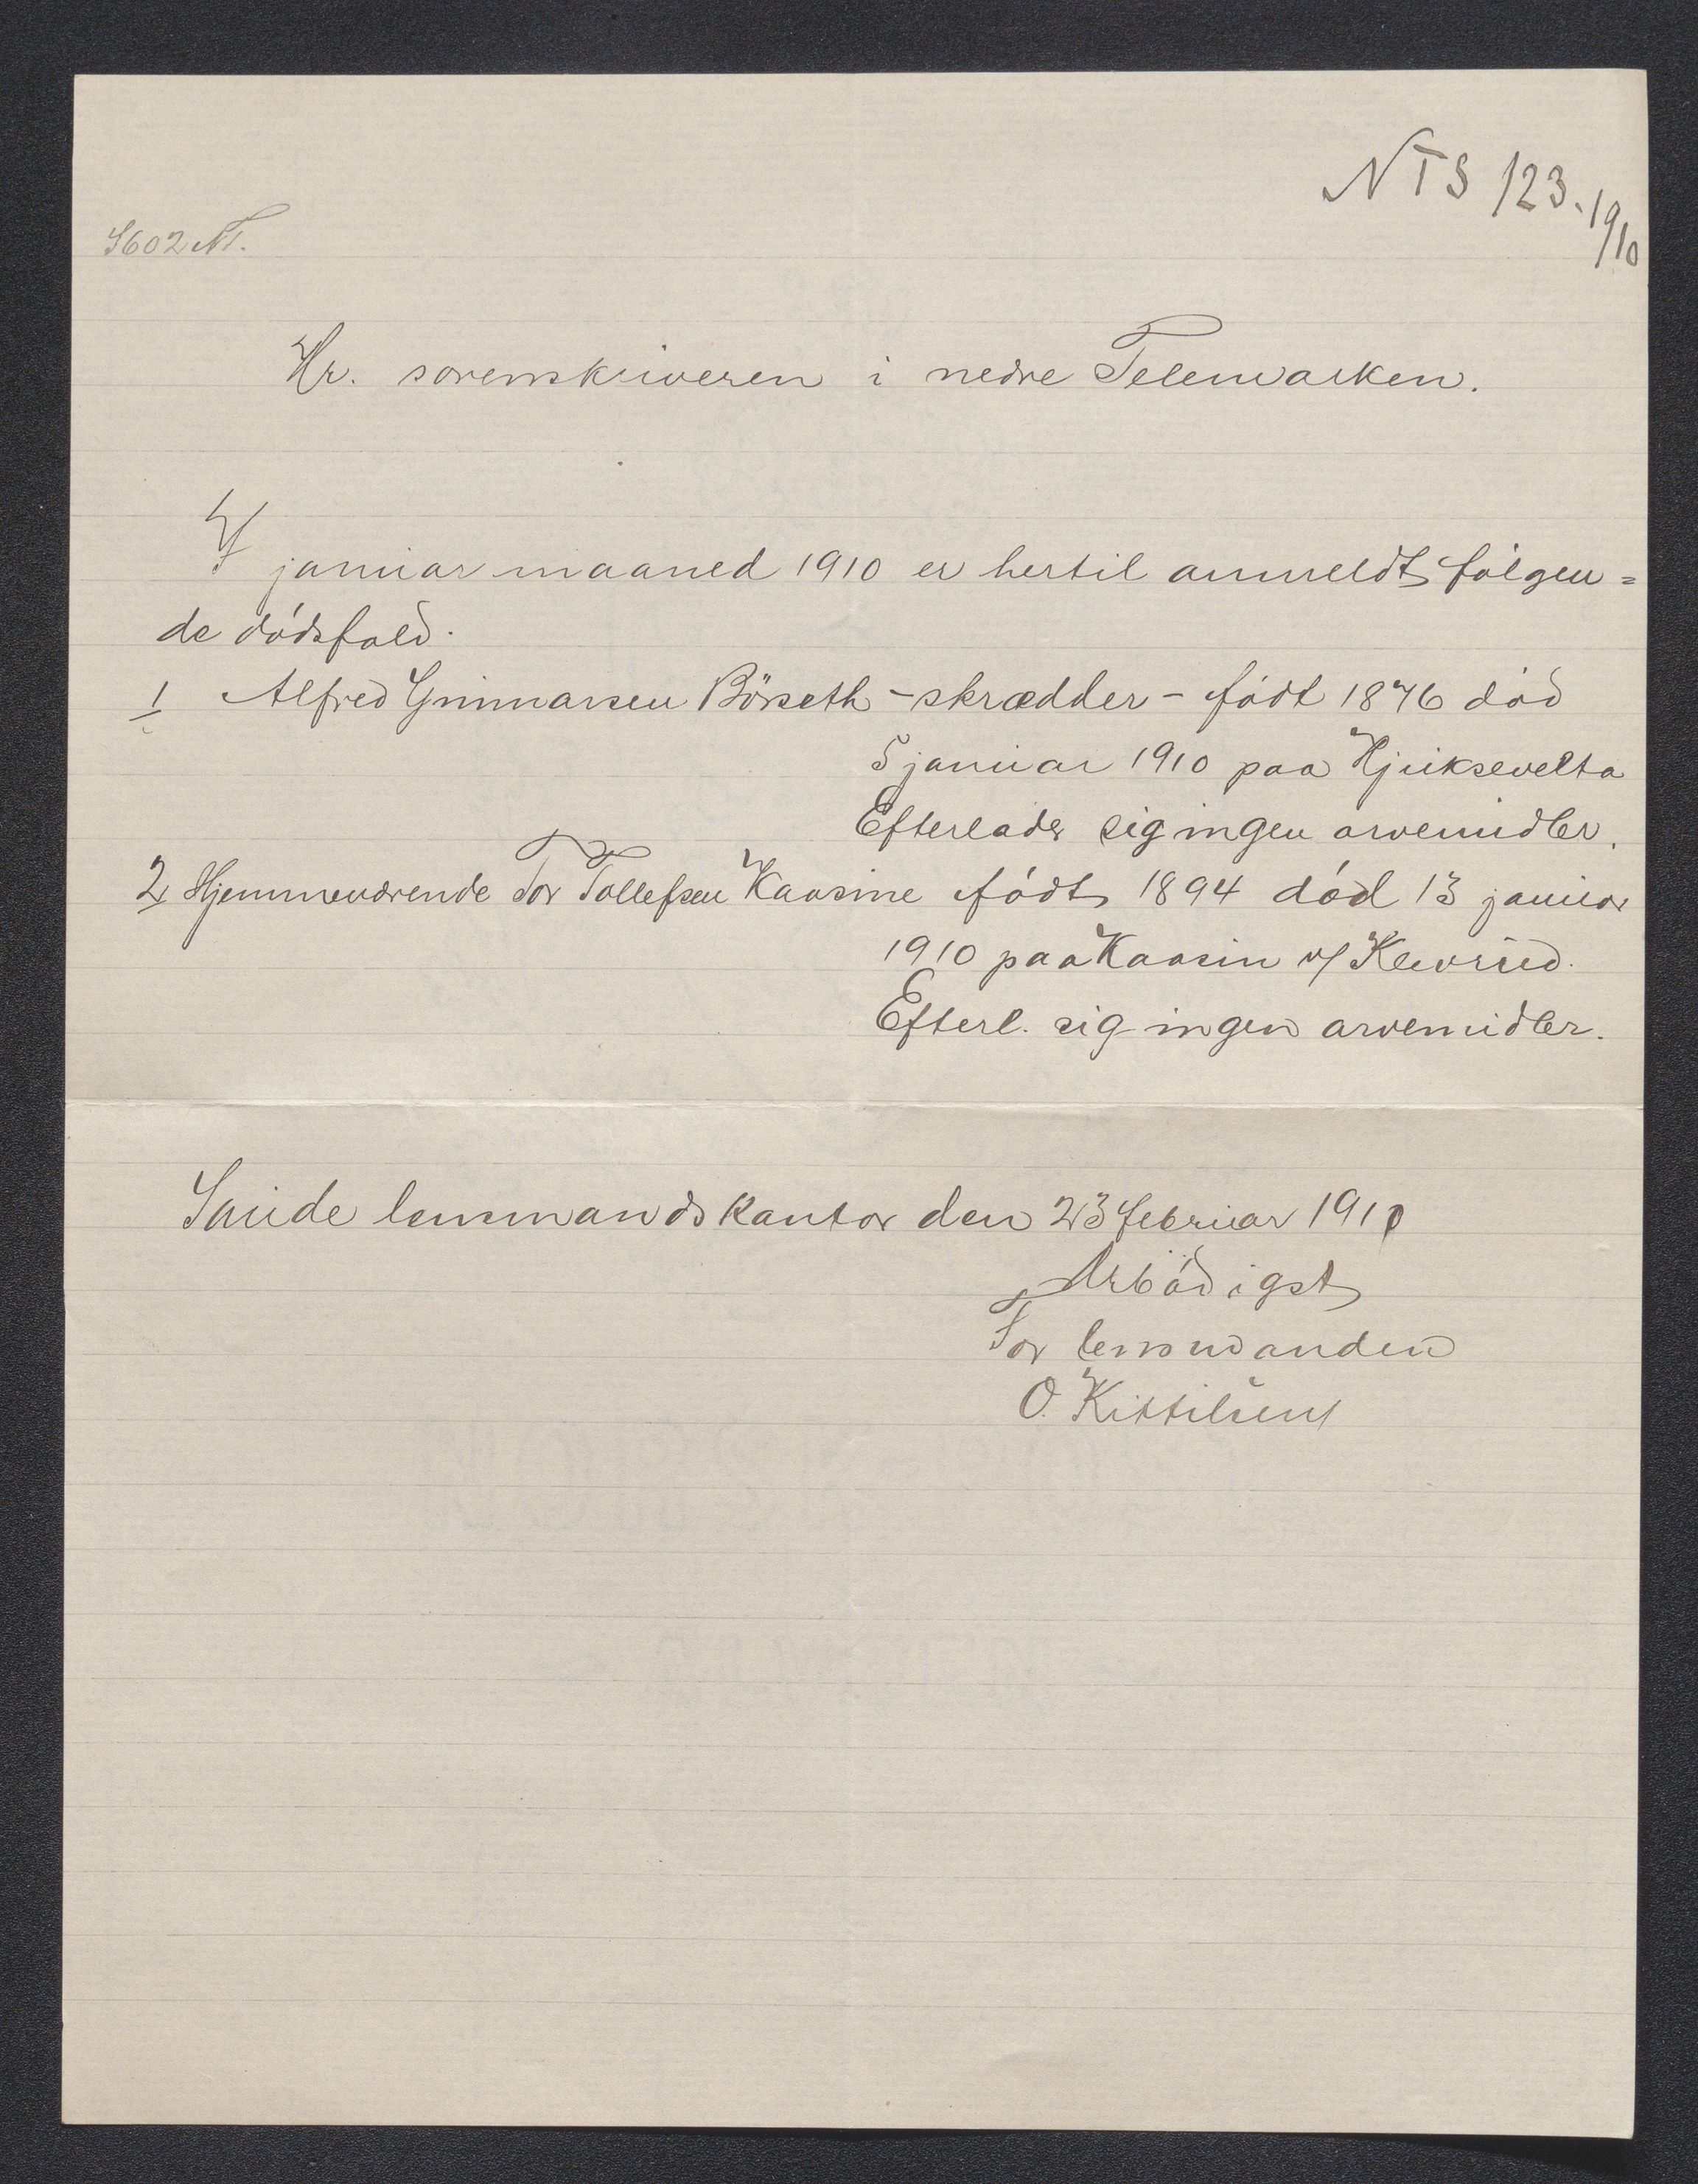 NTS 123. 19/10
S602 NT.
Hr. sorenskriveren i nedre Telemarken.
I januar maaned 1910 er hertil anmeldt følgen=
de dødsfald.
1 Alfred Gunnarsen Börseth - skrædder - født 1876 död
5 januar 1910 paa Hjuksevelta
Efterlader sig ingen arvemidler.
2 Hjemmeværende Tor Tollefsen Kaasine født 1894 död 13 januar
1910 paa Kaasin u/ Klevrud.
Efterl. sig ingen arvemidler.
Saude lensmandskontor den 23 februar 1910
Ærbödigst
For lensmanden
O. Kittilsen